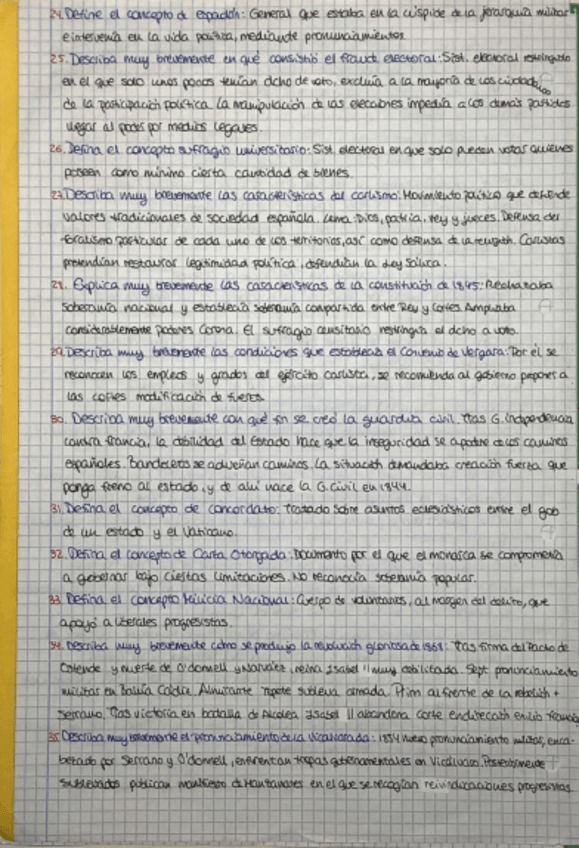 24. Define el concepto de espadón: General que estaba en la cúspide de la jerarquía militar
e intervenía en la vida política, mediante pronunciamientos
25. Describa muy brevemente en qué consistió el fraude electoral: Sist. electoral restringido
en el que solo unos pocos tenían dcho de voto, excluía a la mayoría de los ciudad
de la participación política. La manipulación de las elecciones impedía a los demás partidos
llegar al poder por medios legales.
26. Defina el concepto sufragio universitario: Sist. electoral en que solo pueden votar quienes
poseen como mínimo cierta cantidad de bienes.
27. Describa muy brevemente las características del carlismo: Movimiento político que defiende
valores tradicionales de sociedad española. Lema: Dios, patria, rey y jueces. Defensa del
foralismo particular de cada uno de los territorios, así como defensa de la religión. Carlistas
pretendían restaurar legitimidad política, defendían la Ley Sálica.
28. Explica muy brevemente las características de la constitución de 1845: Rechazaba
soberanía nacional y establecía soberanía compartida entre Rey y Cortes. Ampliaba
considerablemente poderes Corona. El sufragio censitario restringía el dcho a voto.
29. Describa muy brevemente las condiciones que establecía el Convenio de Vergara: Por él se
reconocen los empleos y grados del ejército carlista, se recomienda al gobierno proponer a
las cortes modificación de fueros.
30. Describa muy brevemente con qué fin se creó la guardia civil. Tras G. Independencia
contra francia, la debilidad del Estado hace que la inseguridad se apodere de los caminos
españoles. Bandoleros se adueñan caminos. La situación demandaba creación fuerza que
ponga freno al estado, y de ahí nace la G.Civil en 1844.
31. Defina el concepto de concordato: Tratado sobre asuntos eclesiásticos entre el gob
de un estado y el Vaticano.
32. Defina el concepto de Carta Otorgada: Documento por el que el monarca se comprometía
a gobernar bajo ciertas limitaciones. No reconocía soberanía popular.
33. Defina el concepto Milicia Nacional: Cuerpo de voluntarios, al margen del que
apoyó a liberales progresistas.
34. Describa muy brevemente cómo se produjo la revolución gloriosa de 1868: Tras firma del Pacto de
Ostende y muerte de O'donnell y Narváez, reina Isabel II muy debilitada. Sept pronunciamiento
militar en Bahía Cádiz. Almirante Topete subleva armada. Prim al frente de la rebelión +
Serrano. Tras victoria en batalla de Alcolea Isabel II abandona corte en dirección exilio francia
35. Describa muy brevemente el pronunciamiento de la Vicalvarada: 1854 nuevo pronunciamiento militar, enca-
bezado por Serrano y O'donnell, enfrentan tropas gubernamentales en Vicálvaro. Posteriormente
sublevados publican manifiesto de Manzanares en el que se recogían reivindicaciones progresistas.